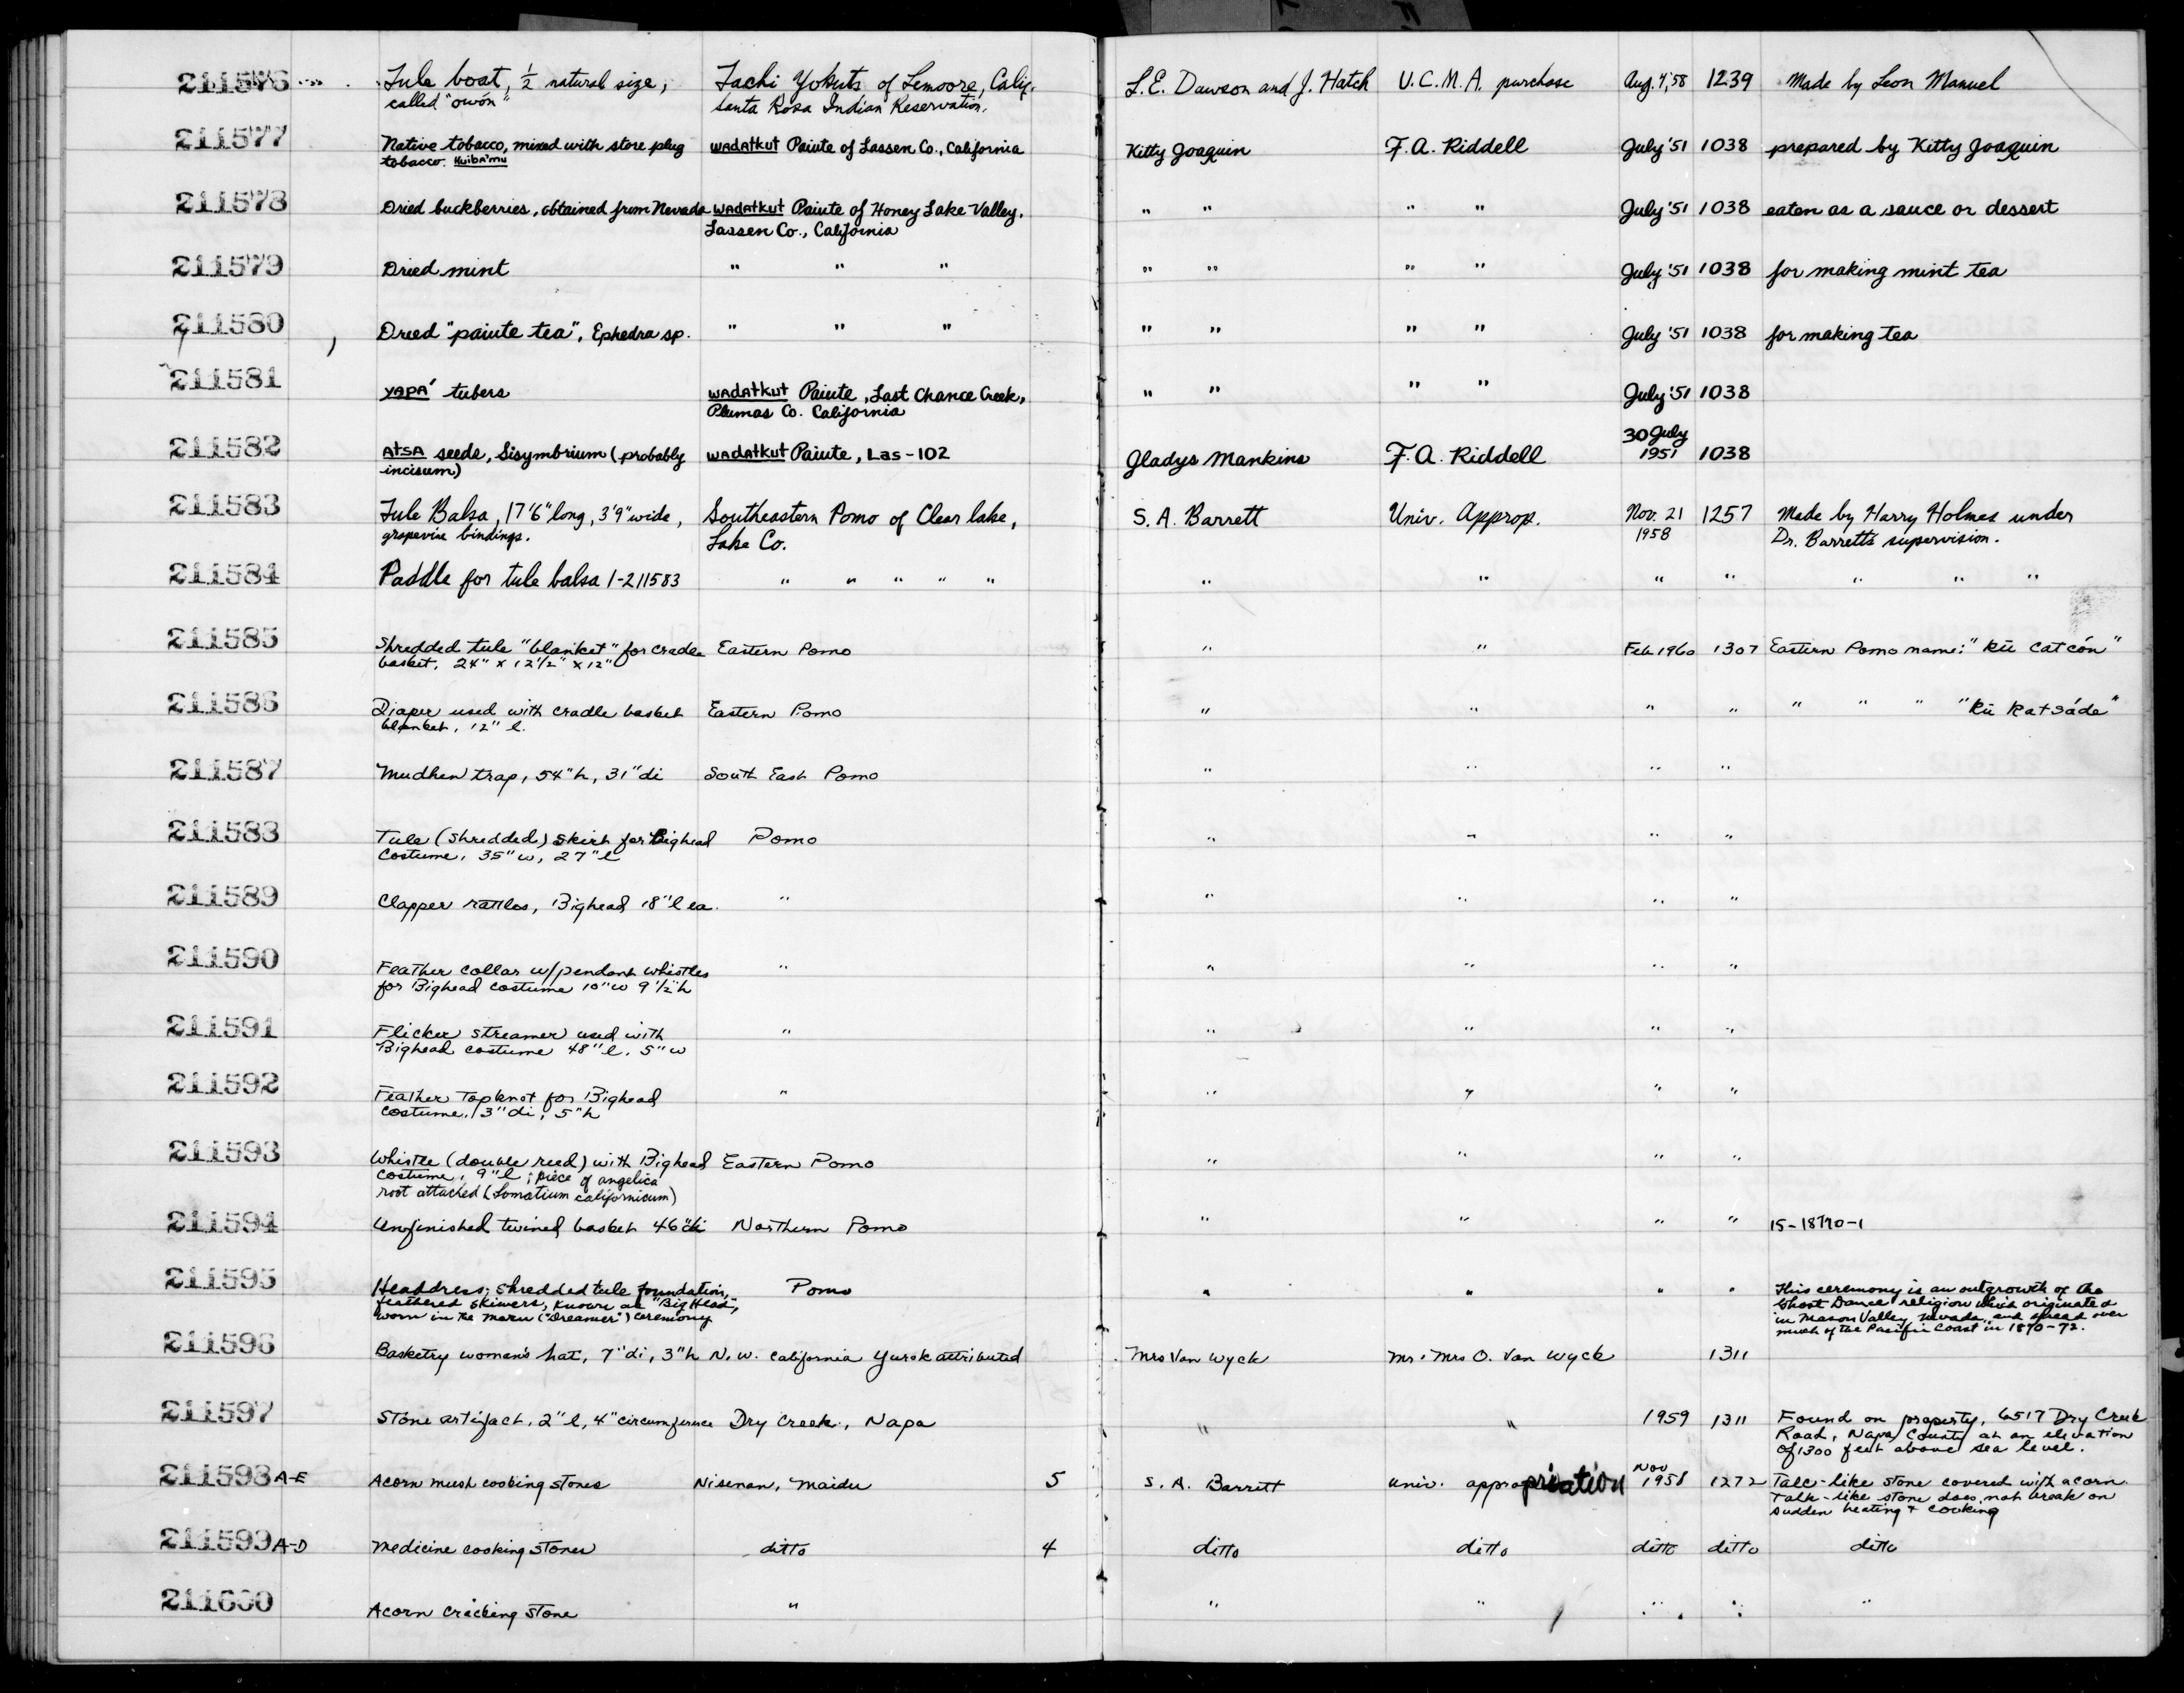 211576 Tule boat, ½ natural size, Tachi Yokuts of Lemoore, Calif. L.E. Dawson and J. Hatch U.C.M.A. purchase Aug. 4, '58 1239 Made by Leon Manuel
called "owón" Santa Rosa Indian Reservation.
211577 Native tobacco, mixed with store plug wadatkut Paiute of Lassen Co., California Kitty Joaquin F.A. Riddell July '51 1038 prepared by Kitty Joaquin
tobacco. Huiba'mu
211578 Dried buckberries, obtained from Nevada wadatkut Paiute of Honey Lake Valley, " " " " July '51 1038 eaten as a sauce or dessert
Lassen Co., California
211579 Dried mint " " " " " " " July '51 1038 for making mint tea
211580 Dried "paiute tea", Ephedra sp. " " " " " " " July '51 1038 for making tea
211581 yapa' tubers wadatkut Paiute, Last Chance Creek, " " " " July '51 1038
Plumas Co. California
30 July
211582 atsa seeds, Sisymbrium (probably wadatkut Paiute, Las-102 Gladys Mankins F.A. Riddell 1951 1038
incisum)
211583 Tule Balsa, 17'6" long, 3'9" wide, Southeastern Pomo of Clear lake, S. A. Barrett Univ. Approp. Nov. 21 1257 Made by Harry Holmes under
grapevine bindings. Lake Co. 1958 Dr. Barrett's supervision.
211584 Paddle for tule balsa 1-211583 " " " " " " " " " " " "
211585 Shredded tule "blanket" for cradle Eastern Pomo " " Feb 1960 1307 Eastern Pomo name: "kū catcón"
basket, 24" x 12½" x 12"
211586 Diaper used with cradle basket Eastern Pomo " " " " " " " "kū katsáde"
blanket, 12" l.
211587 Mudhen trap, 54" h, 31" di South East Pomo " " " "
211588 Tule (shredded) skirt for Bighead Pomo " " " "
costume, 35" w, 27" l
211589 Clapper rattles, Bighead 18" l ea. " " " " "
211590 Feather collar w/pendant whistles " " " " "
for Bighead costume 10" w 9½" h
211591 Flicker streamer used with " " " " "
Bighead costume 48" l, 5" w
211592 Feather topknot for Bighead " " " " "
costume, 3" di, 5" h
211593 Whistle (double reed) with Bighead Eastern Pomo " " " "
costume, 9" l; piece of angelica
root attached (Lomatium californicum)
211594 Unfinished twined basket 46" di Northern Pomo " " " " 15-18770-1
211595 Headdress; shredded tule foundation, Pomo " " " " This ceremony is an outgrowth of the
feathered skewers, known as "Big Head", Ghost Dance religion which originated
worn in the maru ("Dreamer") ceremony in Mason Valley, Nevada, and spread over
much of the Pacific Coast in 1870-72.
211596 Basketry woman's hat, 7" di, 3" h N.W. California Yurok attributed Mrs Van Wyck Mr. Mrs O. Van Wyck 1311
211597 Stone artifact, 2" l, 4" circumference Dry Creek, Napa " " 1959 1311 Found on property, 6517 Dry Creek
Road, Napa County at an elevation
of 1300 feet above sea level.
211598 A-E Acorn mush cooking stones Nisenan, Maidu 5 S. A. Barrett Univ. appropriation Nov 1958 1272 Talc-like stone covered with acorn.
Talk-like stone does not break on
sudden heating + cooking
211599 A-D Medicine cooking stones ditto 4 ditto ditto ditto ditto ditto
211600 Acorn cracking stone " " " " " "